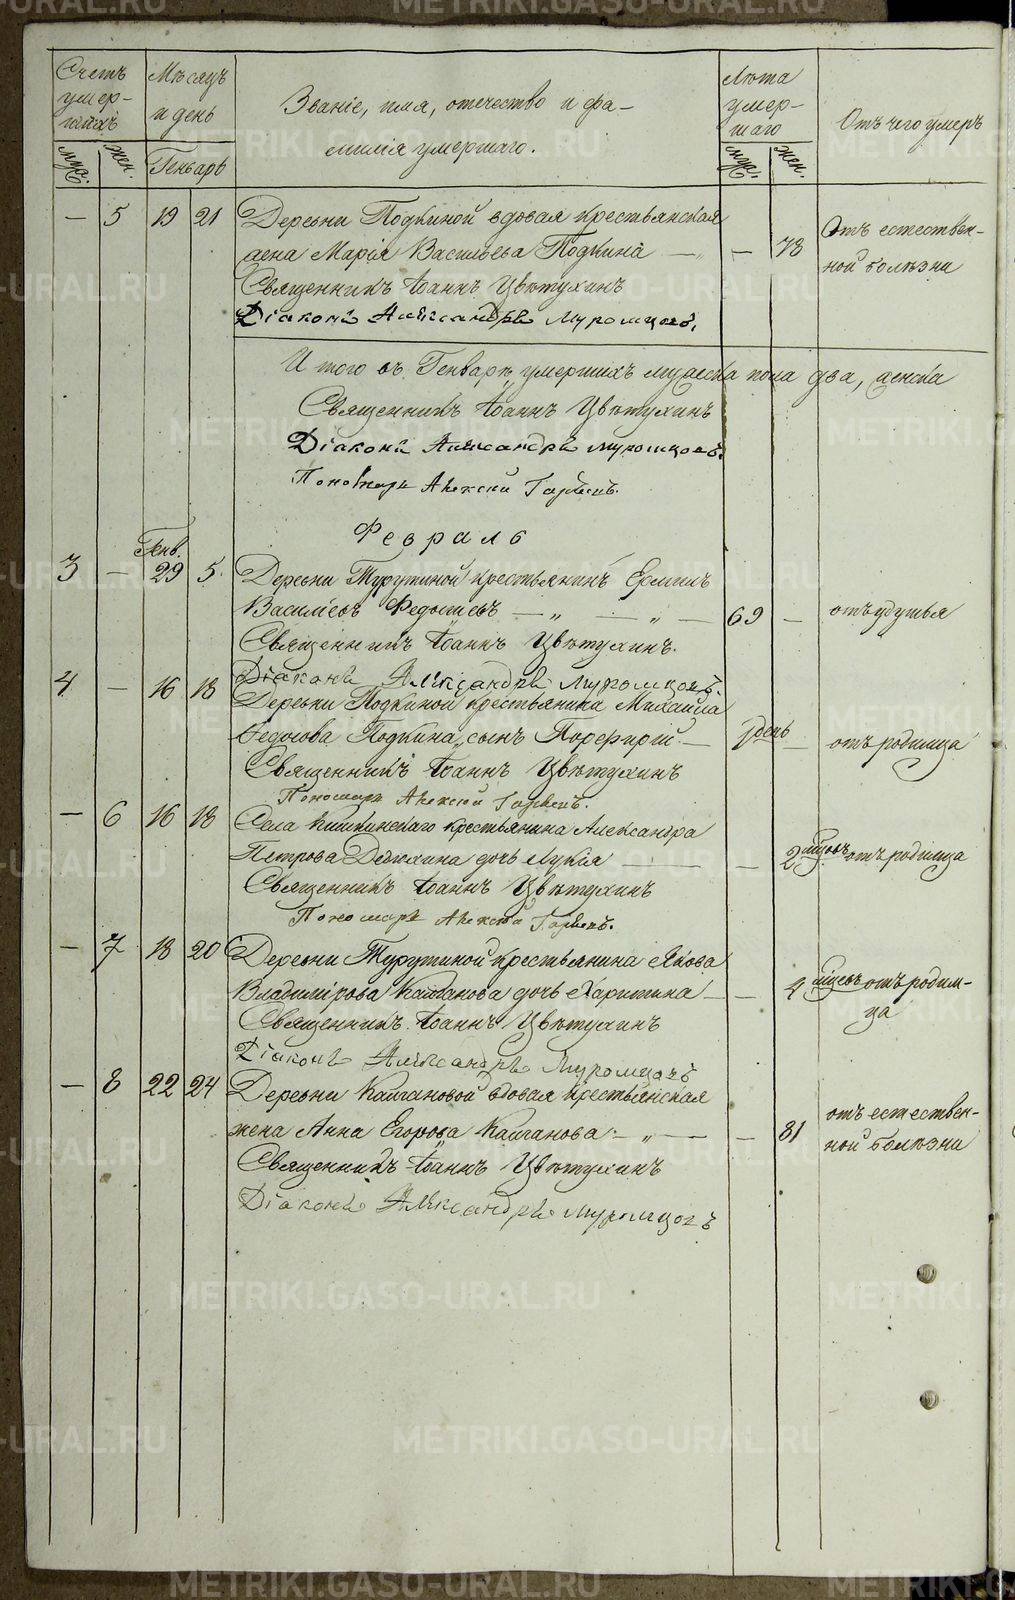 Счетъ умер-шихъ
Мѣсяцъ и день
Званіе, имя, отечество и фа-
милія умершаго.
Лѣта умер-шаго
Отъ чего умеръ
муж. жен.
Генварь
муж. жен.
— 5 19 21 Деревни Подкиной вдовая крестьянская
жена Марія Васильева Подкина — — 78 Отъ естествен-
ной болѣзни
Священникъ Іоаннъ Цвѣтухинъ
Діаконъ Александръ Муромцовъ.
И того въ Генварѣ умершихъ мужеска пола два, женска
Священникъ Іоаннъ Цвѣтухинъ
Діаконъ Александръ Муромцовъ.
Пономарь Алексѣй
Февраль
Генв.
3 — 29 5. Деревни Турутиной крестьянинъ
Васильевъ — „ — „ — 69 — отъ удушья
Священникъ Іоаннъ Цвѣтухинъ.
Діаконъ Александръ Муромцовъ.
4 — 16 18 Деревни Подкиной крестьянина Михаила
Федосова Подкина, сынъ Порфирій — 1 день — отъ родимца
Священникъ Іоаннъ Цвѣтухинъ
Пономарь Алексѣй
— 6 16 18 Села Кишкинскаго крестьянина Александра
Петрова дочь Лукія — — 2 мѣсяцовъ отъ родимца
Священникъ Іоаннъ Цвѣтухинъ
Пономарь Алексѣй
— 7 18 20 Деревни Турутиной крестьянина Якова
Владимірова Калганова дочь Харитина — — 4 мѣсяцовъ отъ родим-
ца
Священникъ Іоаннъ Цвѣтухинъ
Діаконъ Александръ Муромцовъ
— 8 22 24 Деревни Калгановой вдовая крестьянская
жена Анна Егорова Калганова — „ — — 81 отъ естествен-
ной болѣзни
Священникъ Іоаннъ Цвѣтухинъ
Діаконъ Александръ Муромцовъ
METRIKI.GASO-URAL.RU